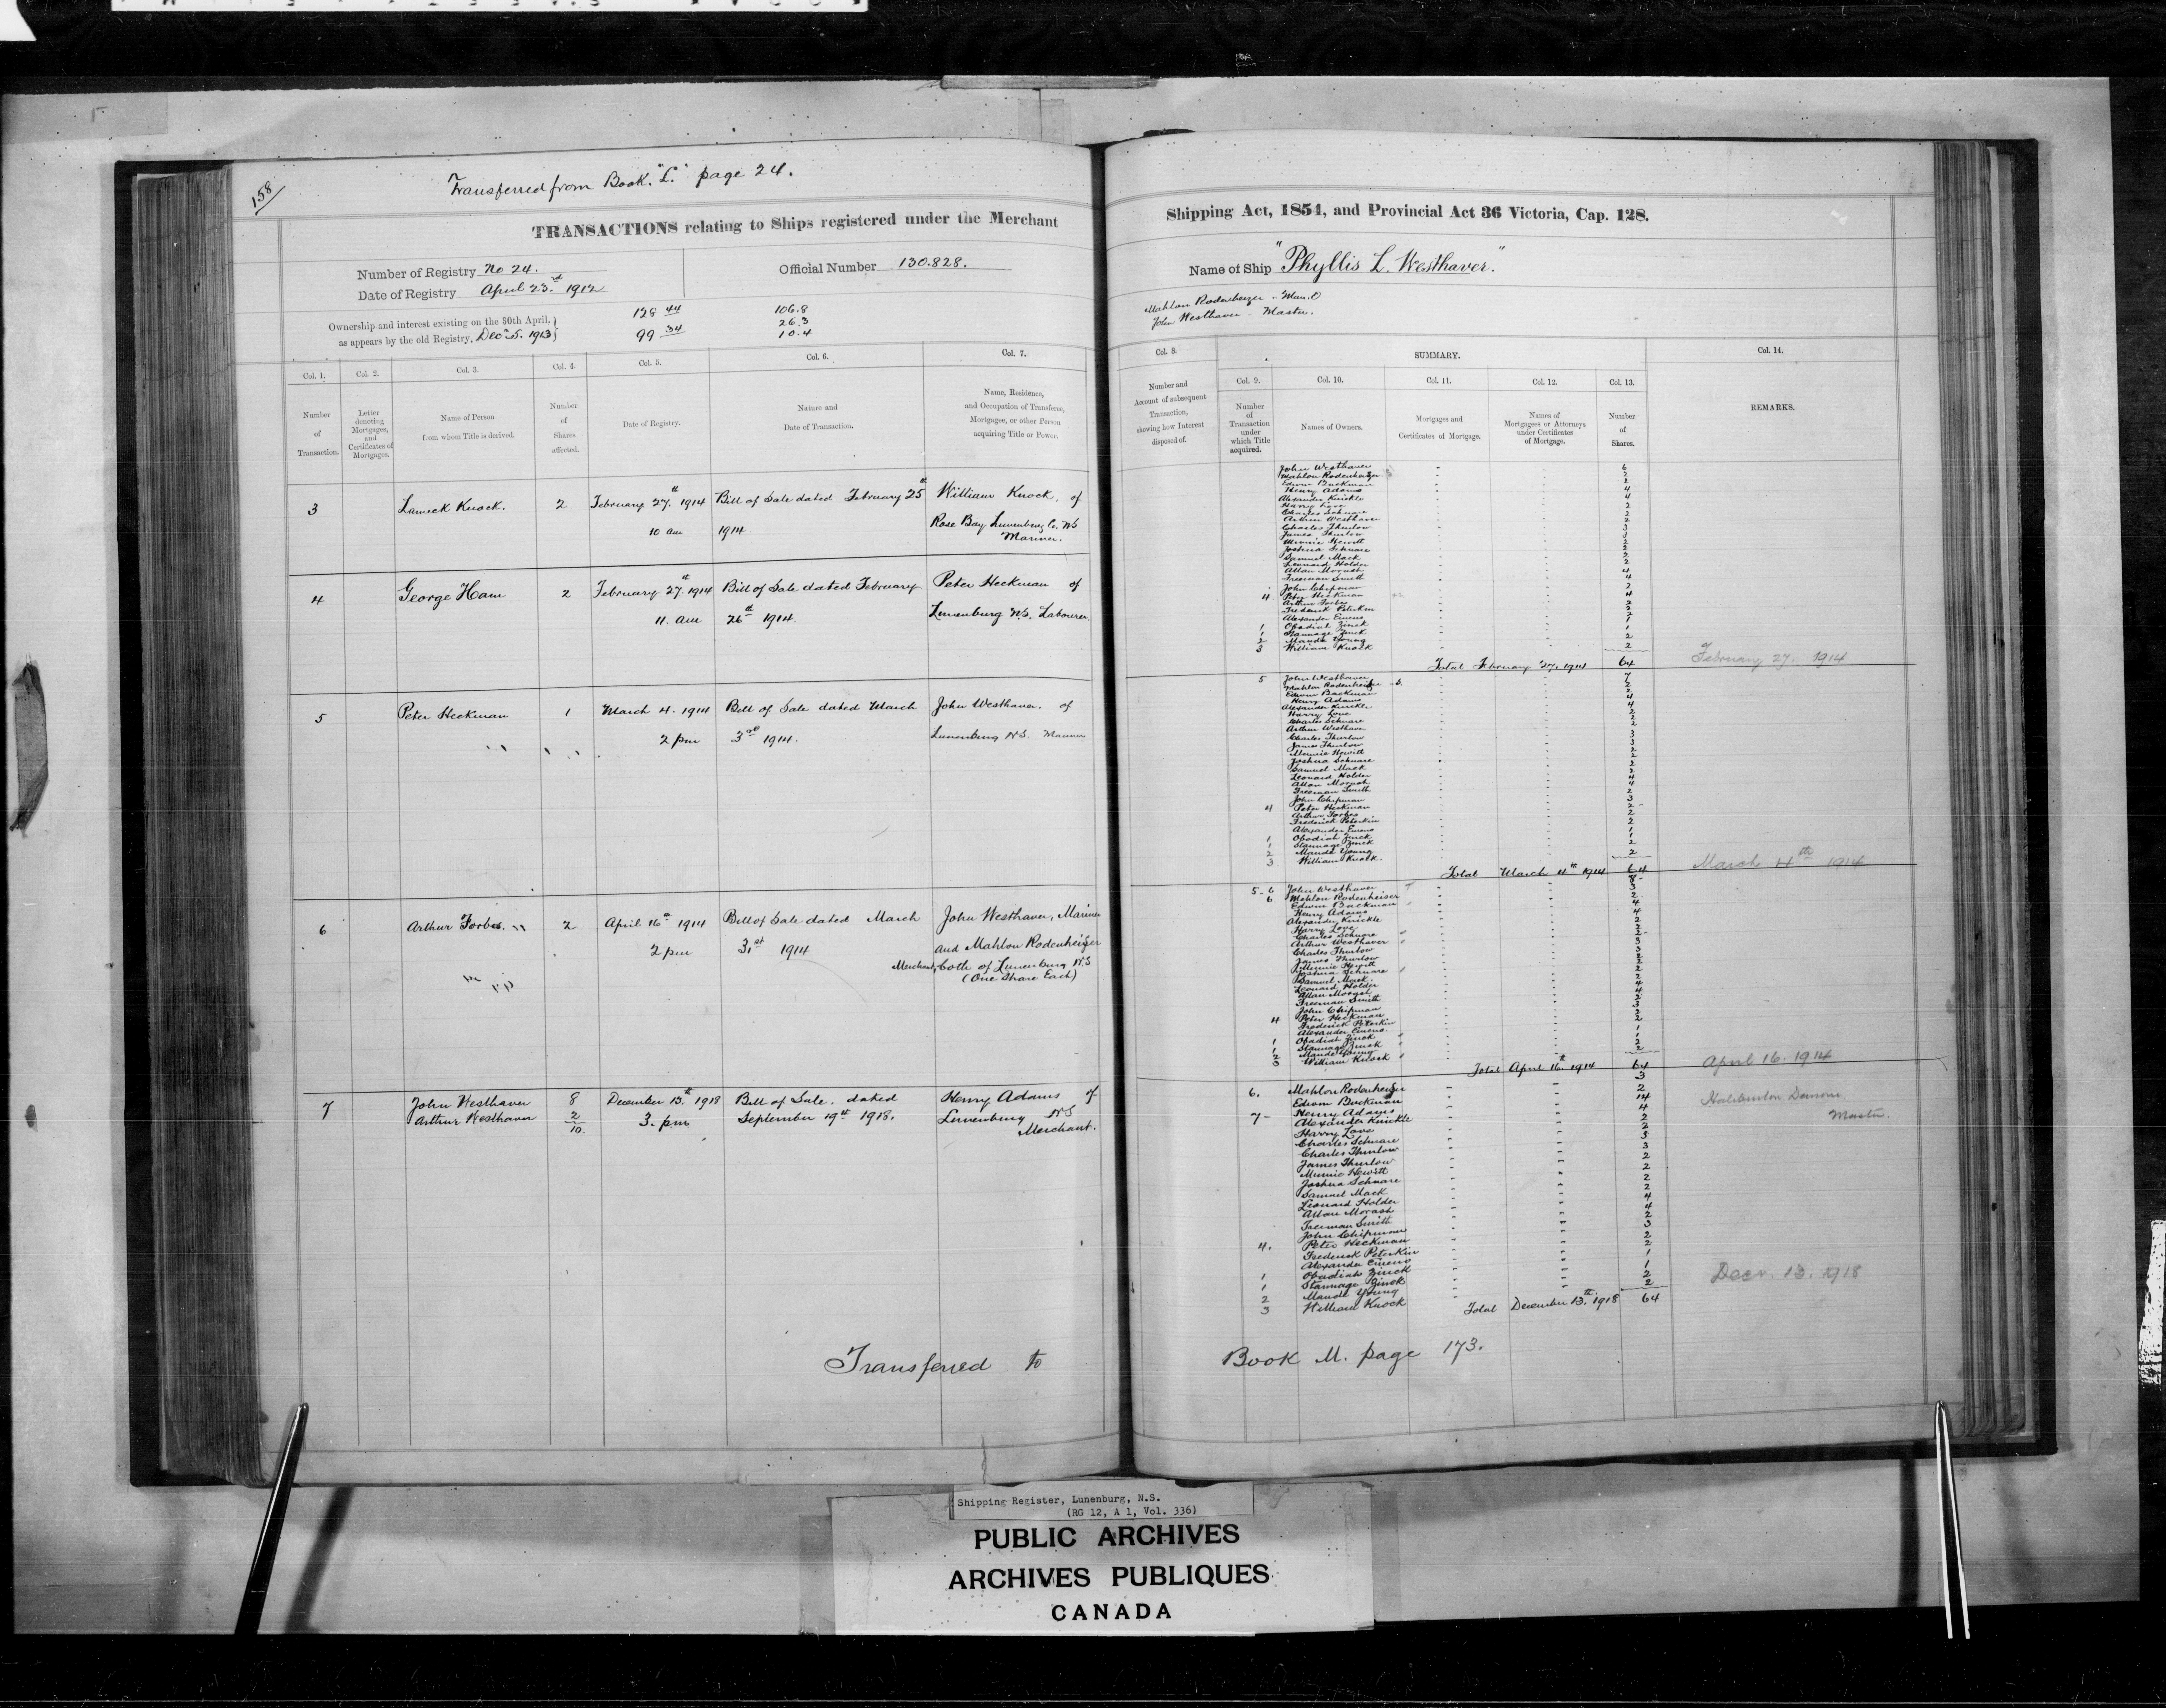 158
Transferred from Book "L" page 24.
TRANSACTIONS relating to Ships registered under the Merchant
Number of Registry No 24.
Official Number 130.828.
Date of Registry April 23rd 1912
Ownership and interest existing on the 30th April,
as appears by the old Registry, Dec 5. 1913
128 44
99 34
106.8
26.3
10.4
Col. 1.
Col. 2.
Col. 3.
Col. 4.
Col. 5.
Col. 6.
Col. 7.
Number of Transaction.
Letter denoting Mortgages, and Certificates of Mortgages.
Name of Person from whom Title is derived.
Number of Shares affected.
Date of Registry.
Nature and Date of Transaction.
Name, Residence, and Occupation of Transferee, Mortgagee, or other Person acquiring Title or Power.
3 Lameck Knock. 2 February 27th 1914 Bill of Sale dated February 25th William Knock, of
10 am 1914 Rose Bay Lunenburg Co. NS
Mariner.
4 George Ham 2 February 27th 1914 Bill of Sale dated February Peter Heckman of
11. am 26th 1914. Lunenburg N.S. Labourer
5 Peter Heckman 1 March 4. 1914 Bill of Sale dated March John Westhaver. of
2 pm 3rd 1914. Lunenburg N.S. Mariner
6 Arthur Forbes. 2 April 16th 1914 Bill of Sale dated March John Westhaver, Mariner
2 pm 31st 1914 and Mahlon Rodenheizer
Merchant, both of Lunenburg N.S
(One Share Each)
7 John Westhaver 8 December 13th 1918 Bill of Sale. dated Henry Adams of
Arthur Westhaver 2 3. pm September 19th 1918. Lunenburg NS
10. Merchant.
Transferred to
Shipping Act, 1854, and Provincial Act 36 Victoria, Cap. 128.
Name of Ship "Phyllis L. Westhaver."
Mahlon Rodenheizer - Man. O
John Westhaver - Master.
Col. 8.
SUMMARY.
Col. 14.
Col. 9.
Col. 10.
Col. 11.
Col. 12.
Col. 13.
Number and Account of subsequent Transaction, showing how Interest disposed of.
Number of Transaction under which Title acquired.
Names of Owners.
Mortgages and Certificates of Mortgage.
Names of Mortgagees or Attorneys under Certificates of Mortgage.
Number of Shares.
REMARKS.
John Westhaver 6
Mahlon Rodenheizer 2
Edwin Backman 2
Henry Adams 4
Alexander Knickle 4
Harry Love 2
Charles Schnare 2
Arthur Westhaver 2
Charles Thurlow 3
James Thurlow 3
Minnie Hewitt 2
Joshua Schnare 2
Samuel Mack 2
Leonard Holder 2
Allan Morash 4
Freeman Smith 4
John Chipman 2
4 Peter Heckman 4
Arthur Forbes 2
Frederick Peterkin 2
Alexander Emeno 2
1 Obadiah Zinck 1
1 Stannage Zinck 1
2 Maude Young 2
3 William Knock 2
Total February 27. 1914 64
February 27. 1914
5 John Westhaver 7
Mahlon Rodenheizer 2
Edwin Backman 2
Henry Adams 4
Alexander Knickle 4
Harry Love 2
Charles Schnare 2
Arthur Westhaver 2
Charles Thurlow 3
James Thurlow 3
Minnie Hewitt 2
Joshua Schnare 2
Samuel Mack 2
Leonard Holder 2
Allan Morash 4
Freeman Smith 4
John Chipman 2
4 Peter Heckman 3
Arthur Forbes 2
Frederick Peterkin 2
Alexander Emeno 2
1 Obadiah Zinck 1
1 Stannage Zinck 1
2 Maude Young 2
3 William Knock. 2
Total March 4th 1914 64
March 4th 1914
5-6 John Westhaver 8
6 Mahlon Rodenheiser 3
Edwin Backman 2
Henry Adams 4
Alexander Knickle 4
Harry Love 2
Charles Schnare 2
Arthur Westhaver 2
Charles Thurlow 3
James Thurlow 3
Minnie Hewitt 2
Joshua Schnare 2
Samuel Mack 2
Leonard Holder 2
Allan Morash 4
Freeman Smith 4
John Chipman 2
4 Peter Heckman. 3
Frederick Peterkin 2
Alexander Emeno. 2
1 Obadiah Zinck 1
1 Stannage Zinck 1
2 Maude Young 2
3 William Knock 2
Total April 16th 1914 64
April 16. 1914
6. Mahlon Rodenheizer 3
Edwin Backman 2
7- Henry Adams 14
Alexander Knickle 4
Harry Love 2
Charles Schnare 2
Charles Thurlow 3
James Thurlow 3
Minnie Hewitt 2
Joshua Schnare 2
Samuel Mack 2
Leonard Holder 2
Allan Morash 4
Freeman Smith 4
John Chipman 2
4. Peter Heckman 3
Frederick Peterkin 2
Alexander Emeno 2
1 Obadiah Zinck 1
1 Stannage Zinck 1
2 Maude Young 2
3 William Knock 2
Master.
Total December 13th 1918 64
Decr. 13. 1918
Book M. page 173.
Shipping Register, Lunenburg, N.S.
(RG 12, A 1, Vol. 336)
PUBLIC ARCHIVES
ARCHIVES PUBLIQUES
CANADA